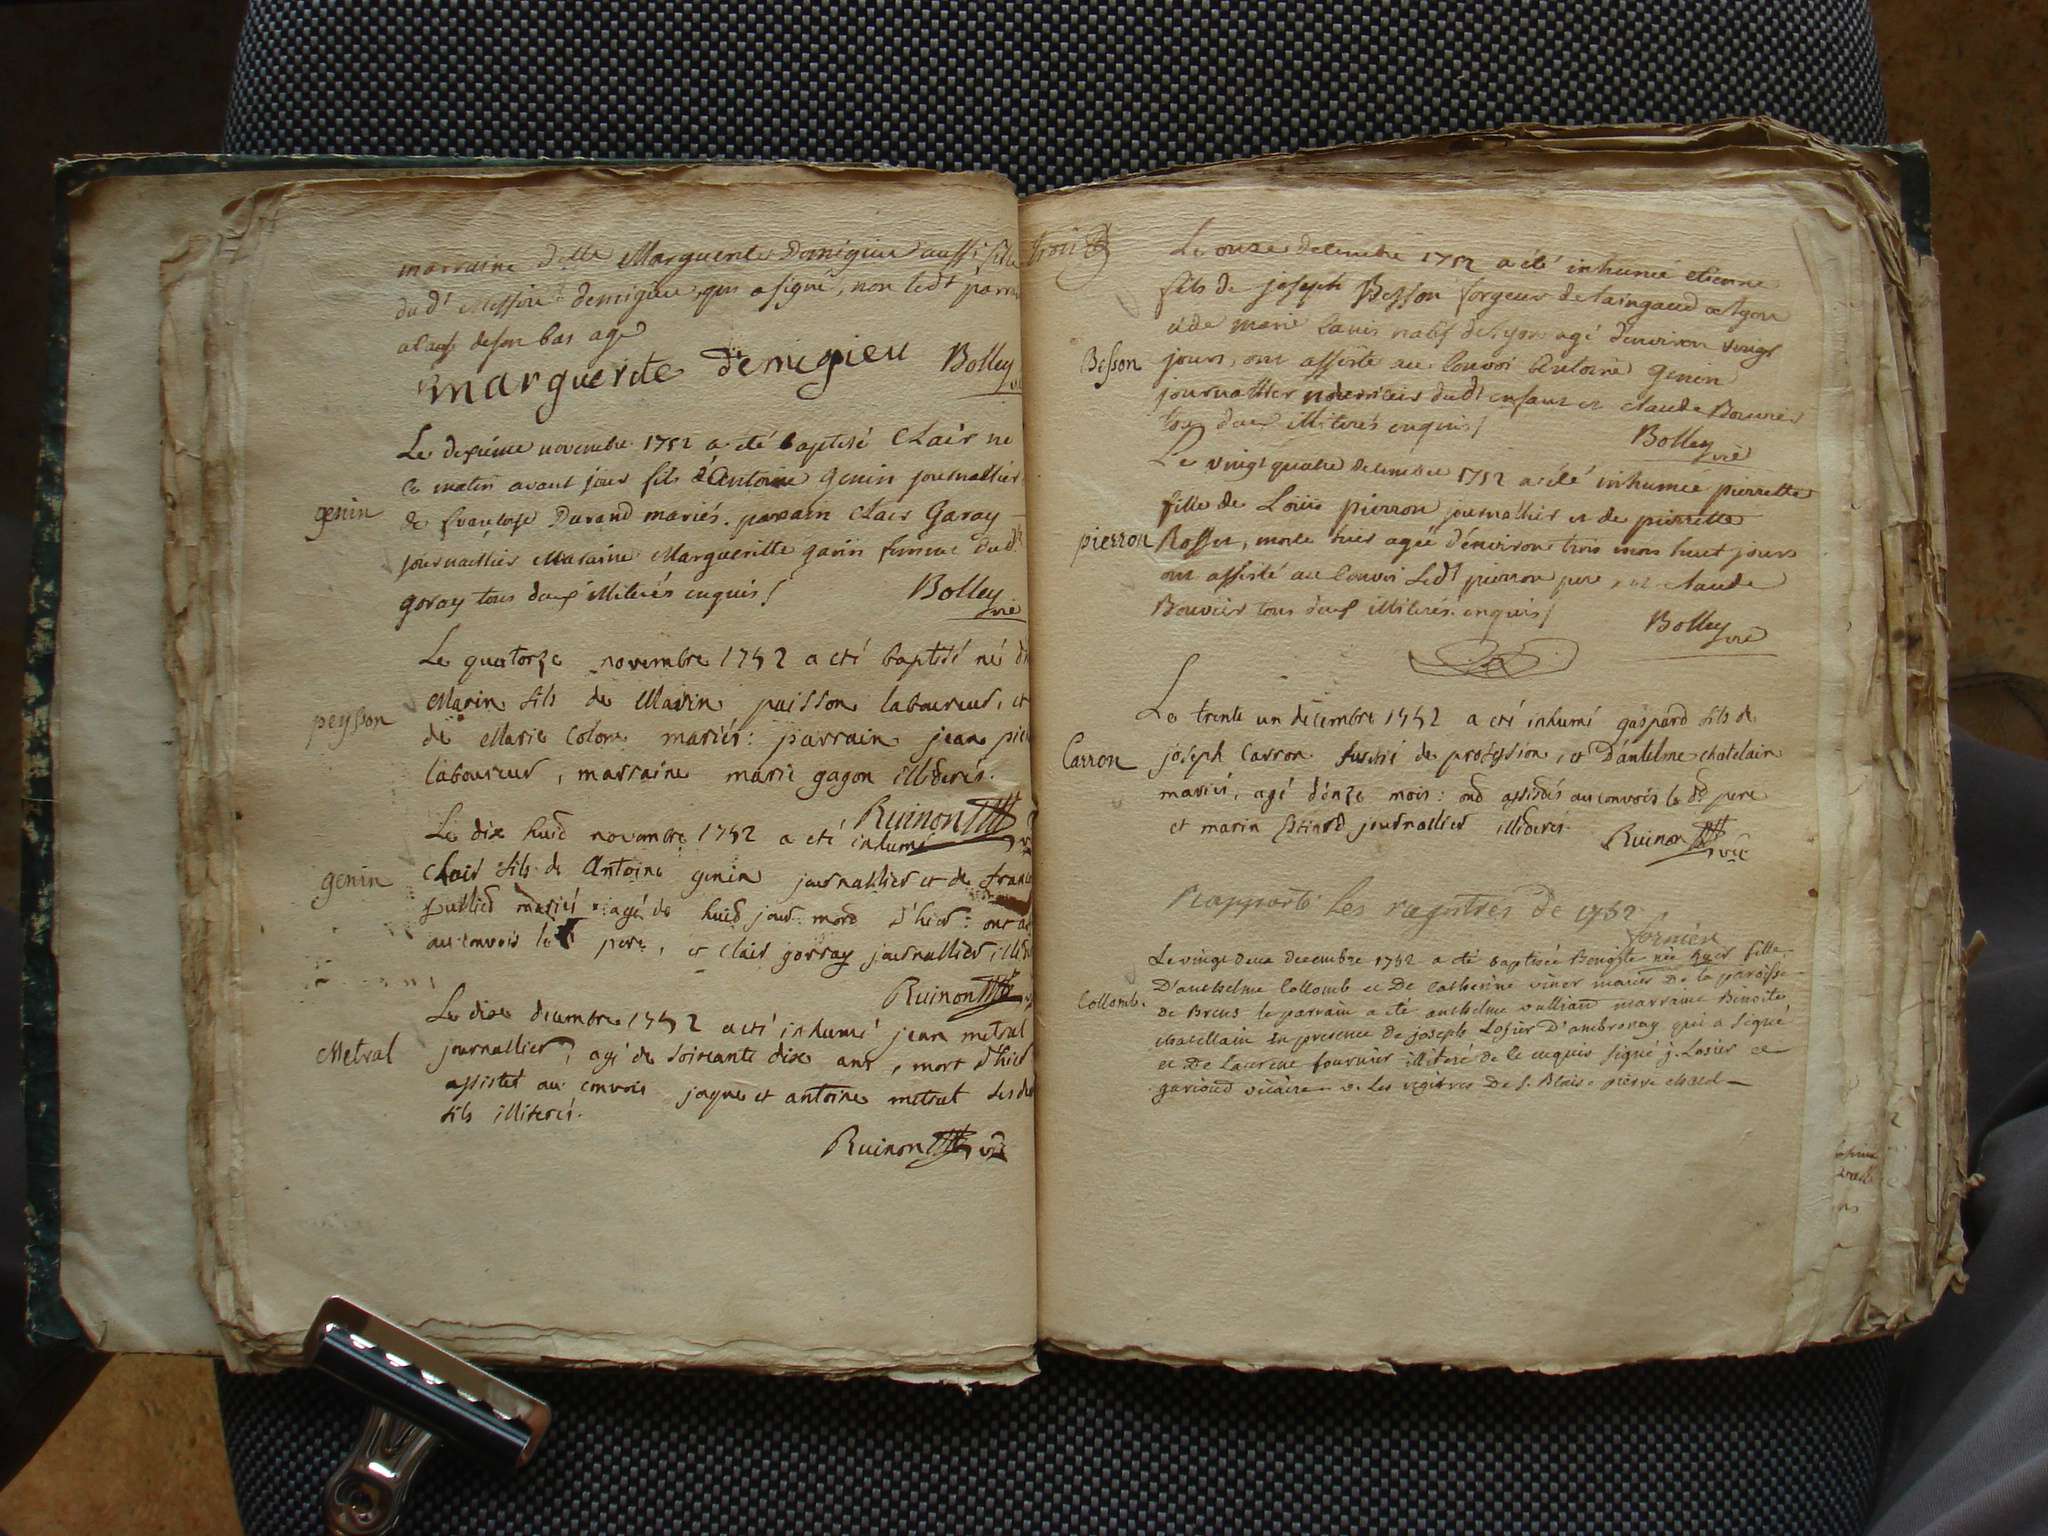 marraine d^lle Marguerite Demigieu aussi fille
dud^t Messire demigieu, qui a signé, non led^t parrai
a cause de son bas age
marguerite demigieu Bolley
Le dixiéme novembre 1752 a été baptisé Clair né
ce matin avant jour fils d'Antoine genin journallier
genin
de françoise Durand mariés. parrain Clair Garay
journallier Maraine Margueritte garin femme dud^t
goray tous deux illiterés enquis / Bolley vic
Le quatorze novembre 1752 a eté baptisé né
peysson
Marin fils de Marin puisson laboureur, et
de Marie Colom mariés: parrain jean
laboureur, marraine marie gagon illiderés.
Ruinon
Le dix huid novambre 1752 a eté inhumé
genin
Clair fils de Antoine genin journallier et de franc
mariés agé de huid jour mord d'hier: ont
au convois le pere, et Clair gorray journallier,
Ruinon
Le dixe decembre 1752 a eté inhumé jean metral
Metral
journallier, agé de soixante dixe ans, mort d'hier
assistet au convois jaque et antoine metral
fils illiterés.
Ruinon vic
trois
Le onze decembre 1752 a été inhumé etienne
fils de joseph Besson forgeur de a lyon
et de marie natif de lyon agé d'environ vingt
Besson
jours, ont assisté au Convoi Antoine genin
journallier nourricier dud^t enfant et Claude Bouvier
tous deux illiterés enquis / Bolley vic
Le vingt quatre decembre 1752 a été inhumée pierrette
fille de Loüis pierron journallier et de pierrette
pierron
Rosset, morte hier agée d'environ trois mois huit jours
ont assisté au Convoi Led^t pierron pere, et claude
Bouvier tous deux illiterés enquis /
Bolley vic
Le trente un decembre 1752 a eté inhumé gaspard fils de
Carron
joseph Carron de profession, et D'antelme chatelain
mariés, agé d'onze mois: ond assistés au convois le d^t pere
et marin journallier illiderés.
Ruinon vic
Rapporté les registres de 1752
fornier
Le vingt deux decembre 1752 a été baptisée Benoîte née hyer fille
Collomb.
D'anthelme Collomb et De Catherine mariés De la paroisse
de le parrain a été anthelme vulliand marraine Benoite
chatellain en presence de joseph Losier D'ambronay qui a signé
et De Laurent fournier illiteré de ce enquis signé j. Losier et
garioud vicaire v. Les registres De S. Blaise pierre